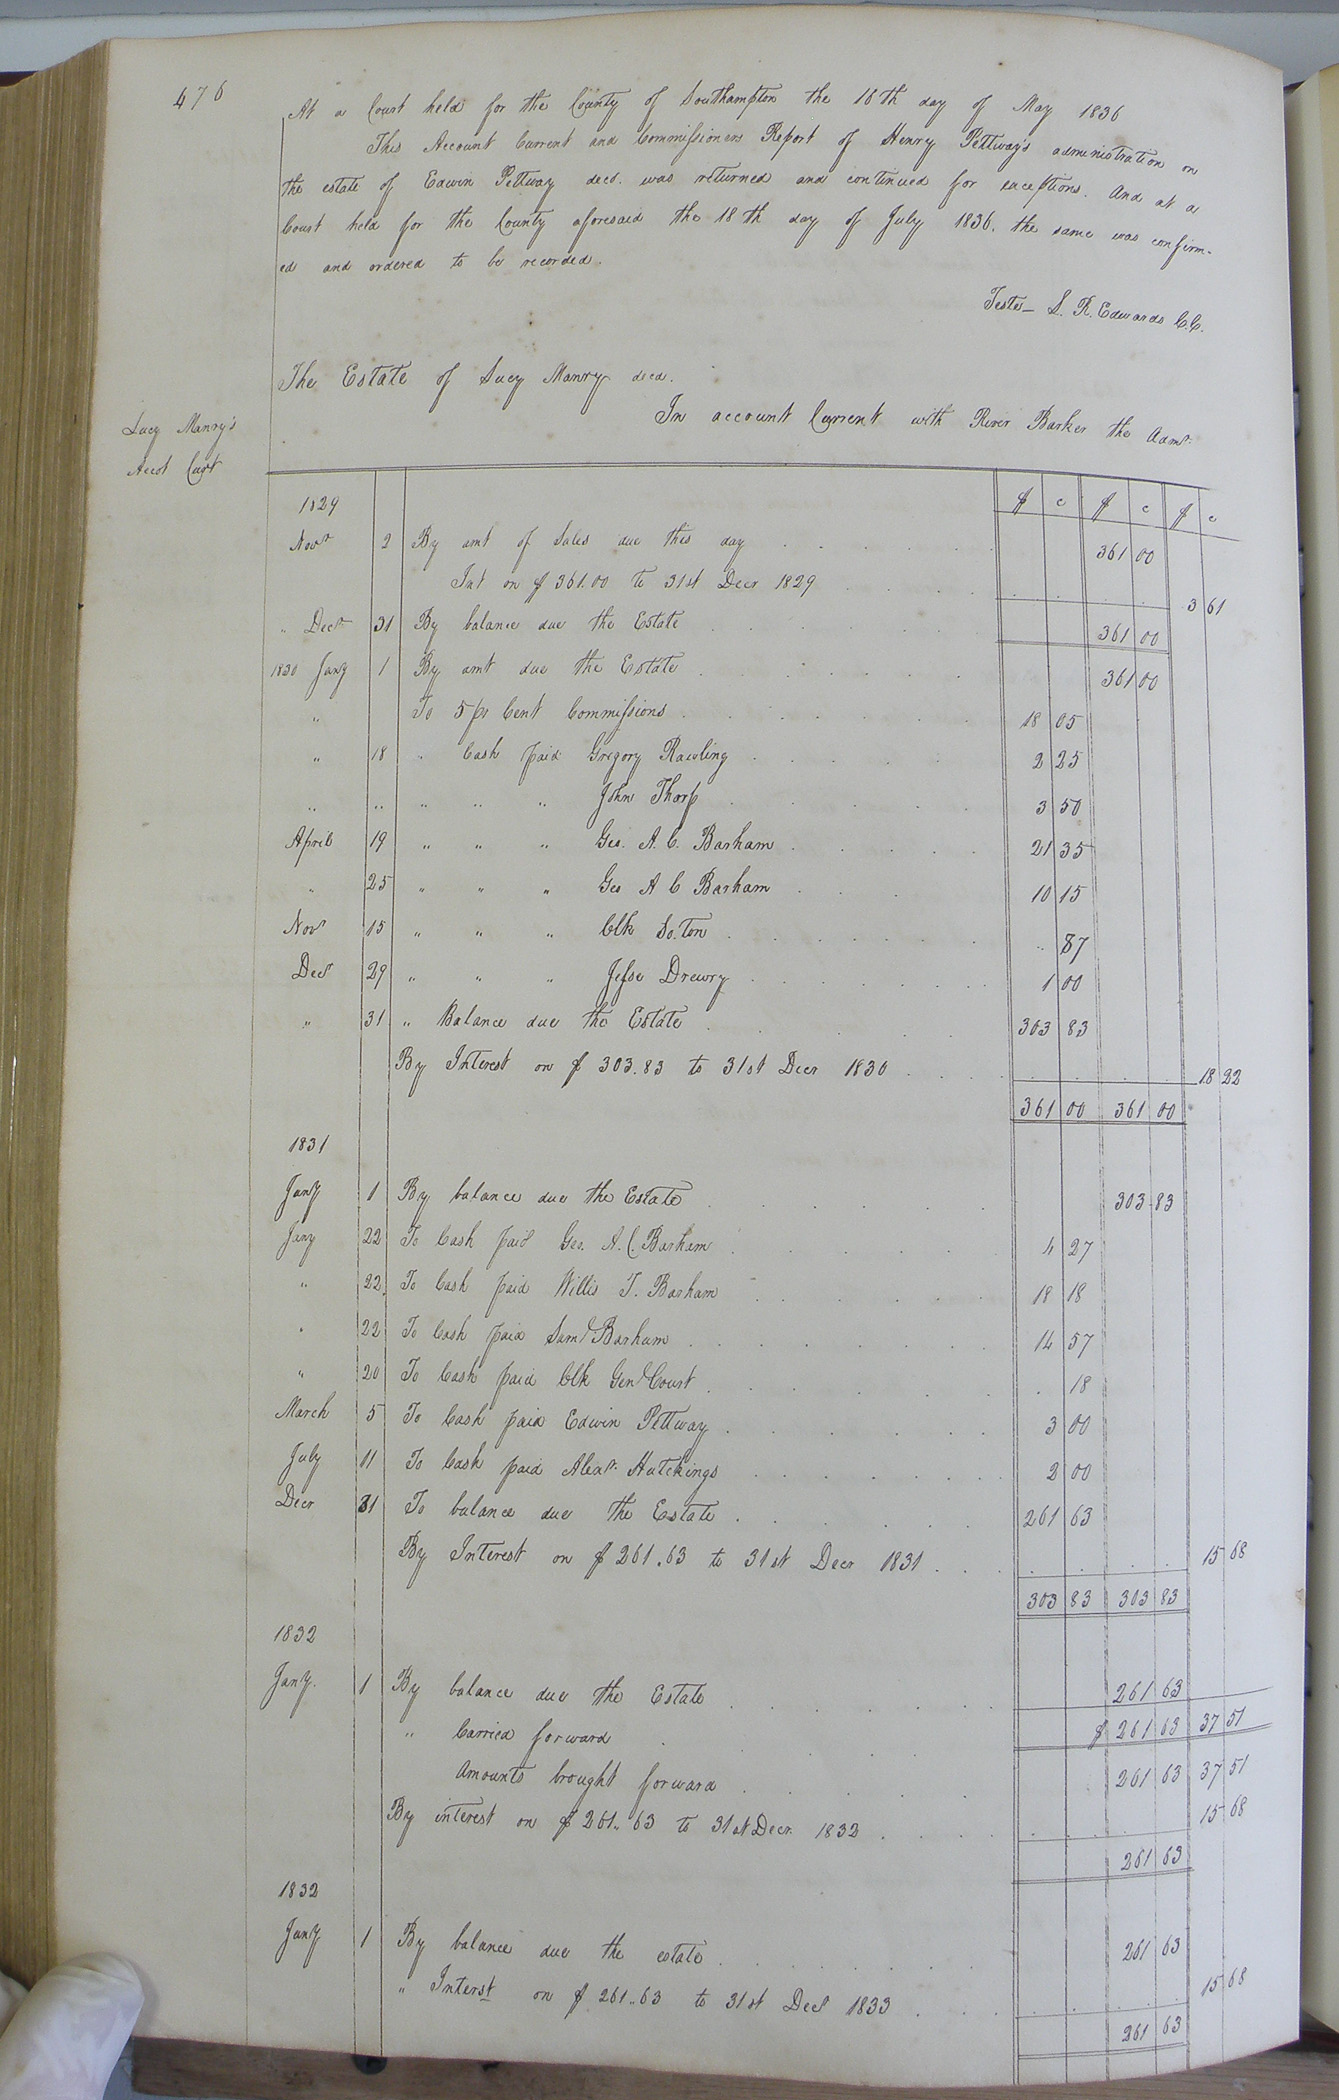 476
At a Court held for the County of Southampton the 16th day of May 1836
This Account Current and Commissioners Report of Henry Pettway's administration on
the estate of Edwin Pettway decd. was returned and continued for exceptions. And at a
Court held for the County aforesaid the 18th day of July 1836. the same was confirm-
ed and ordered to be recorded.
Teste_ L. R. Edwards C.C.
The Estate of Lucy Manry decd.
In account Current with River Barker the Admr.
Lucy Manry's
Accot Curt
1829 $ c $ c $ c
Novr 2 By amt of Sales due this day 361 00
Int on $361.00 to 31st Decr 1829 3 61
" Decr 31 By balance due the Estate 361 00
1830 Jany 1 By amt due the Estate 361 00
" To 5 pr Cent Commissions 18 05
" 18 " Cash paid Gregory Rawling 2 25
" " " " " John Thorp 3 50
April 19 " " " Geo. A. C. Barham 21 35
" 25 " " " Geo A C Barham 10 15
Novr 15 " " " Clk So.ton .. 87
Decr 29 " " " Jesse Drewry 1 00
" 31 " Balance due the Estate 303 83
By Interest on $303.83 to 31st Decr 1830 18 22
361 00 361 00
1831
Jany 1 By balance due the Estate 303 83
Jany 22 To Cash paid Geo. A. C. Barham 4 27
" 22 To Cash paid Willis T. Barham 18 18
" 22 To Cash paid Saml Barham 14 57
" 20 To Cash paid Clk Genl Court . 18
March 5 To Cash paid Edwin Pettway 3 00
July 11 To Cash paid Alexr. Hutchings 2 00
Decr 31 To balance due the Estate 261 63
By Interest on $261.63 to 31st Decr 1831 15 68
303 83 303 83
1832
Jany. 1 By balance due the Estate 261 63
" Carried forward $ 261 63 37 51
Amounts brought forward 261 63 37 51
By interest on $261..63 to 31st Decr. 1832 15 68
261 63
1832
Jany 1 By balance due the estate 261 63
" Interst on $261..63 to 31st Decr 1833 15 68
261 63